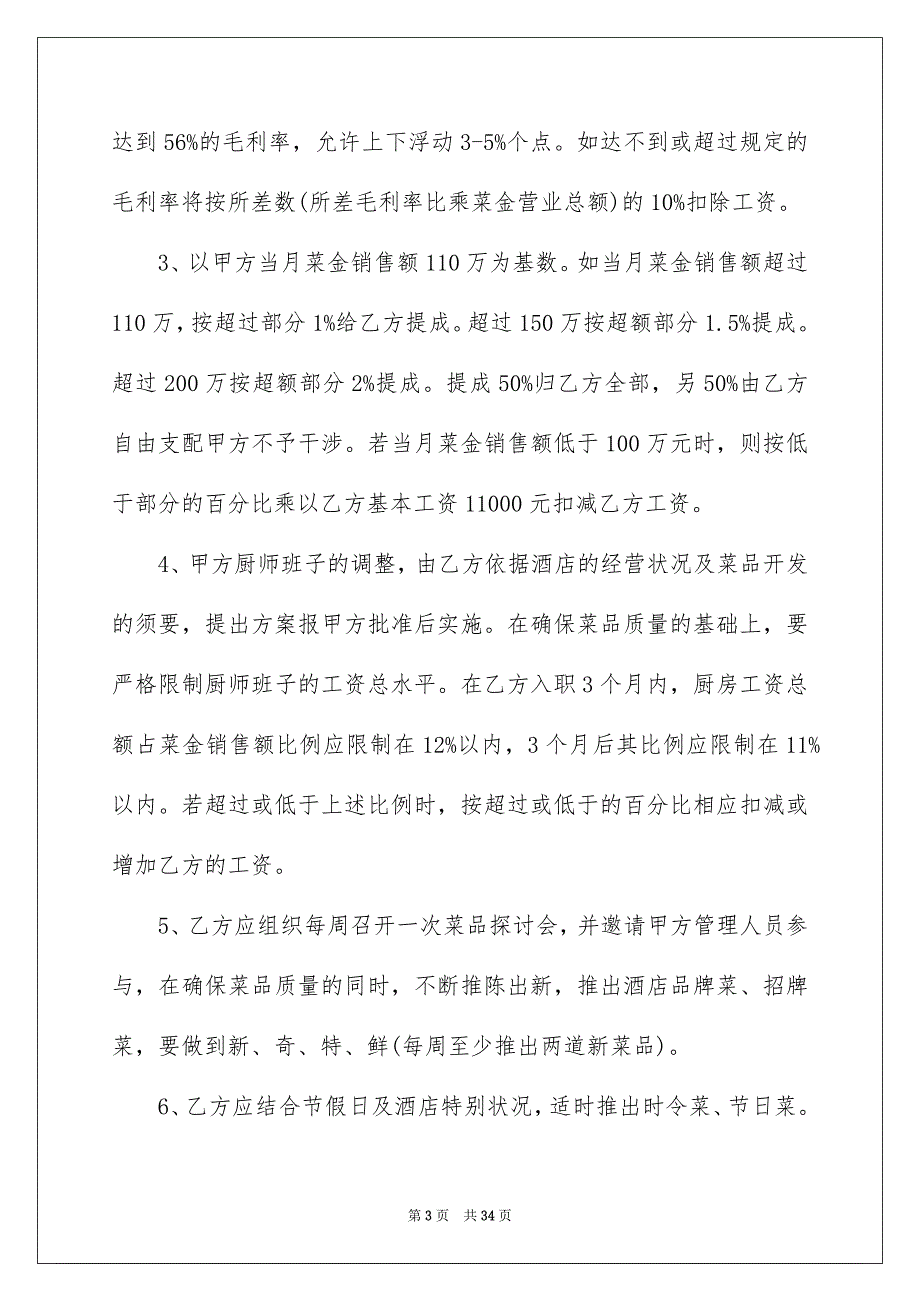 达到56%的毛利率，允许上下浮动3-5%个点。如达不到或超过规定的
毛利率将按所差数(所差毛利率比乘菜金营业总额)的10%扣除工资。
3、以甲方当月菜金销售额110万为基数。如当月菜金销售额超过
110万,按超过部分1%给乙方提成。超过150万按超额部分1.5%提成。
超过200万按超额部分2%提成。提成50%归乙方全部，另50%由乙方
自由支配甲方不予干涉。若当月菜金销售额低于100万元时，则按低
于部分的百分比乘以乙方基本工资11000元扣减乙方工资。
4、甲方厨师班子的调整，由乙方依据酒店的经营状况及菜品开发
的须要，提出方案报甲方批准后实施。在确保菜品质量的基础上，要
严格限制厨师班子的工资总水平。在乙方入职3个月内，厨房工资总
额占菜金销售额比例应限制在12%以内，3个月后其比例应限制在11%
以内。若超过或低于上述比例时，按超过或低于的百分比相应扣减或
增加乙方的工资。
5、乙方应组织每周召开一次菜品探讨会，并邀请甲方管理人员参
与，在确保菜品质量的同时，不断推陈出新，推出酒店品牌菜、招牌
菜，要做到新、奇、特、鲜(每周至少推出两道新菜品)。
6、乙方应结合节假日及酒店特别状况，适时推出时令菜、节日菜。
第3页 共34页